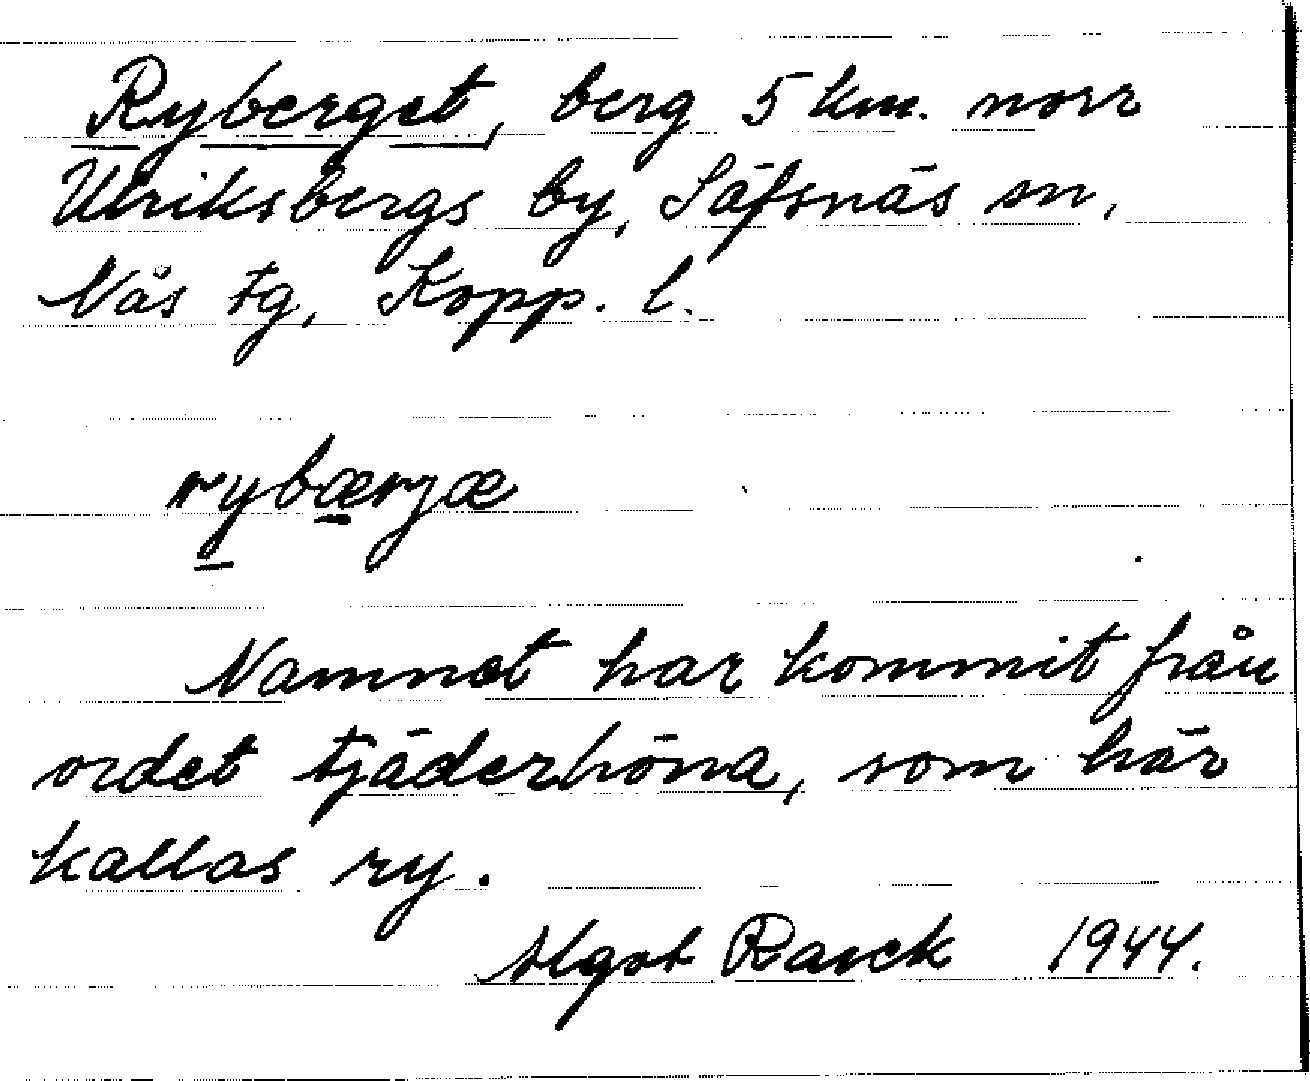 Ryberget, berg 5 km. norr
Ulriksbergs by, Säfsnäs sn,
Nås tg, Kopp. l.
rybærjæ
Namnet har kommit från
ordet tjäderhöna, som här
kallas ry.
Algot Rasck 1944.